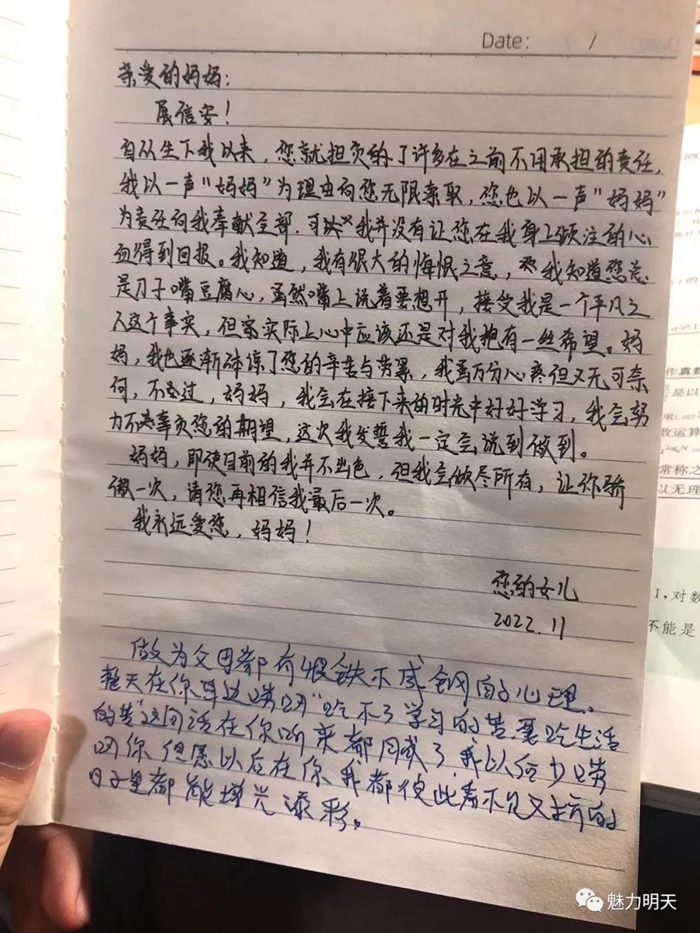 Date: /
亲爱的妈妈:
展信安!
自从生下我以来,您就担负的了许多在之前不用承担的责任,
我以一声“妈妈”为理由向您无限索取,您也以一声“妈妈”
为责任向我奉献全部.可我并没有让您在我身上倾注的心
血得到回报。我知道,我有很大的悔恨之意,我知道您总
是刀子嘴豆腐心,虽然嘴上说着要想开,接受我是一个平凡之
人这个事实,但实际上心中应该还是对我抱有一丝希望。妈
妈,我也逐渐体谅了您的辛苦与劳累,我虽万分心疼但又无可奈
何,不过,妈妈,我会在接下来的时光中好好学习,我会努
力不辜负您的期望,这次我发誓我一定会说到做到。
妈妈,即使目前的我并不出色,但我会做尽所有,让你骄
傲一次,请您再相信我最后一次。
我永远爱您,妈妈!
您的女儿
2022.11
做为父母都有恨铁不成钢的心理.
整天在你耳边唠叨“吃不了学习的苦要吃生活
的苦”这句话在你听来都成了.我以后少唠
叨你 但愿以后在你我都彼此看不见又
日子里都能增光添彩。
1,对数
不能是
数运算
常称之
以无理
魅力明天